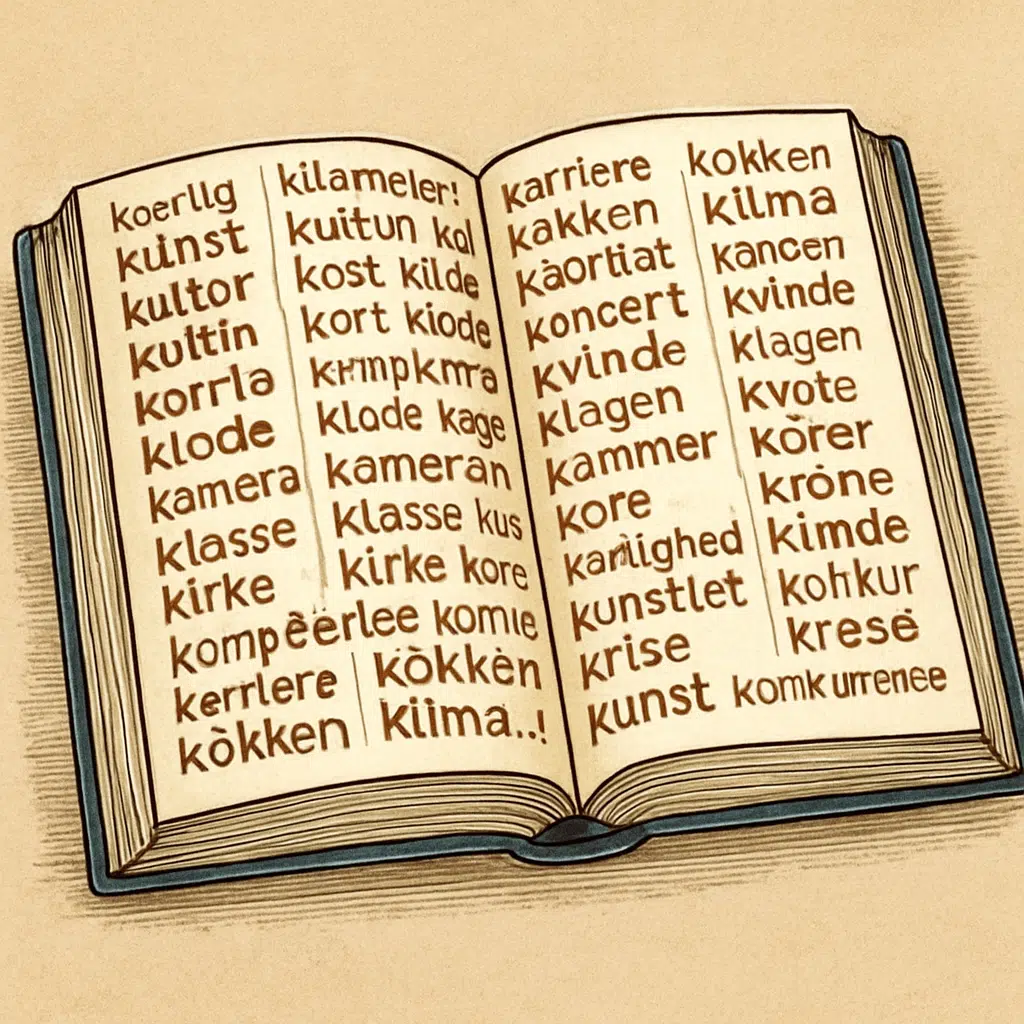 koerllg
kunst
kultor
kultin
korrla
klode
kamera
klasse
kirke
kilameler!
kuitun kal
kost kilde
kort kiode
klode kage
kameran
klasse kus
kirke kore
kompëërlee komie
kerrlere
kòkken
kòkkèn
kiima..!
karriere
kakken
kàortiat
koncert
kvinde
klagen
kammer
kore
kunstlet
krise
kunst komkurrenee
kokken
kilma
kancen
kvinde
klagen
kvote
kòrer
kròne
kimde
kresė